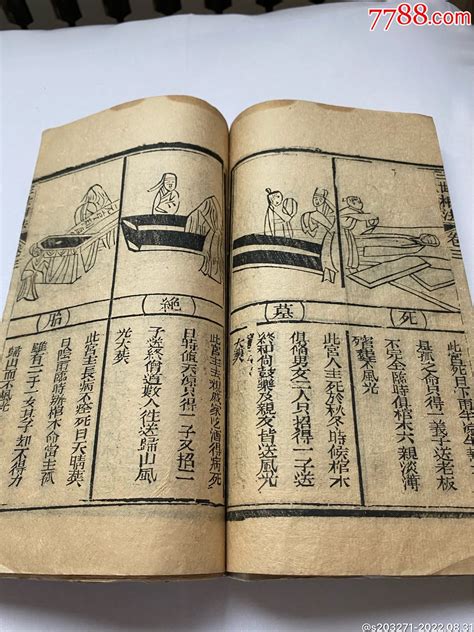 7788.com
三世相法 卷三
死
此宮死日下雨年
是孤之命只得一義子送老板
不完全臨時俱棺木六親淡薄
殯葬不風光
墓
此宮人主死於秋冬時候棺木
俱備男女二人只招得一子送
終和尚鼓樂及親友皆送風光
大葬
絶
此宮主 酒得病死
日時值天 只得一子又招一
子送終僧道數人往送歸山風
光大葬
胎
此宮主長病不痊死日天晴葬
日陰雨臨時 棺木命當主孤
雖有一子一女其子却不得力
歸山而不風光
@s203271-2022.08.31